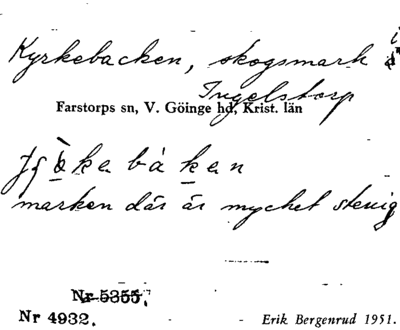 Kyrkebacken, skogsmark i
Ingelstorp
Farstorps sn, V. Göinge hd, Krist. län
bàken
marken där är mycket stenig
Nr 5355.
Nr 4932.
Erik Bergenrud 1951.